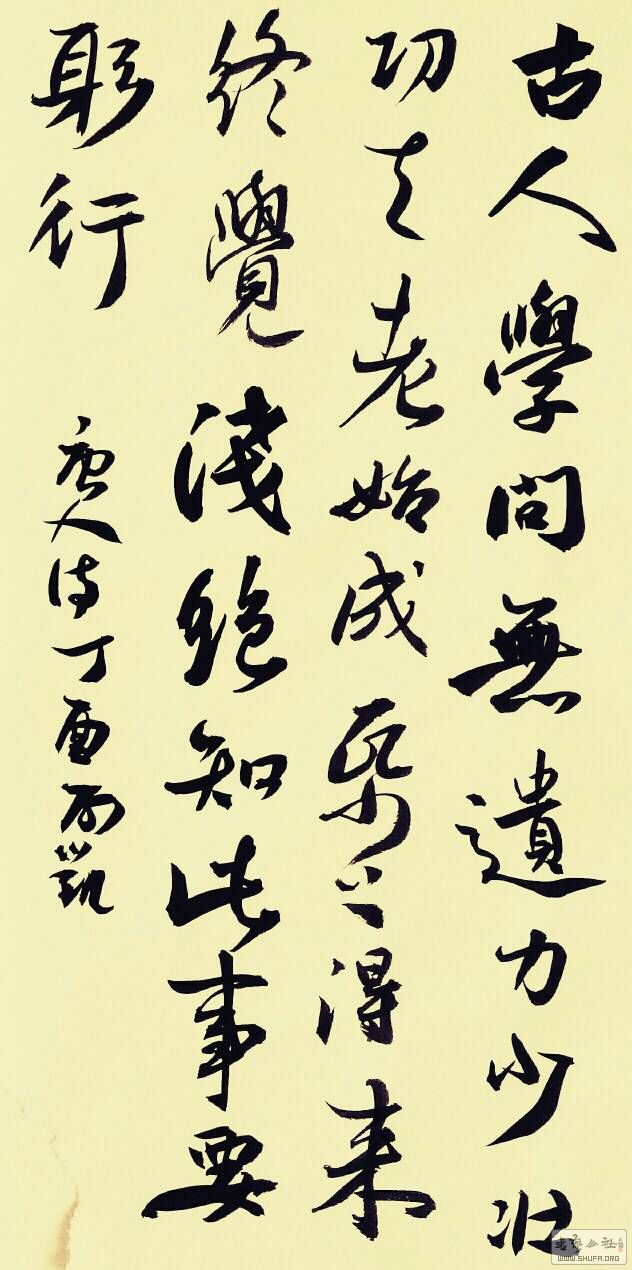 古人學問無遺力少壯
功夫老始成紙上得來
終覺淺絕知此事要
躬行
唐人诗丁酉 凱
WWW.SHUFA.ORG